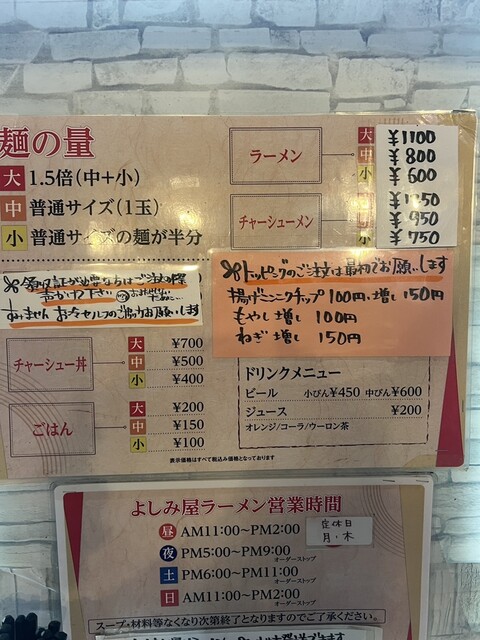 麺の量
大 1.5倍(中+小)
中 普通サイズ(1玉)
小 普通サイズの麺が半分
ラーメン
大 ¥1100
中 ¥800
小 ¥600
チャーシューメン
¥1250
¥950
小 ¥750
※領収証が必要な方はご注文の際
声かけ下さい
すいません お冷セルフのご協力お願いします
※トッピングのご注文は最初でお願いします
揚げニンニクチップ 100円、増し 150円
もやし増し 100円
ねぎ増し 150円
チャーシュー丼
大 ¥700
中 ¥500
小 ¥400
ごはん
大 ¥200
中 ¥150
小 ¥100
ドリンクメニュー
ビール 小びん¥450 中びん¥600
ジュース ¥200
オレンジ/コーラ/ウーロン茶
表示価格はすべて税込み価格となっております
よしみ屋ラーメン営業時間
昼 AM11:00~PM2:00
定休日
月・木
夜 PM5:00~PM9:00
オーダーストップ
土 PM6:00~PM11:00
オーダーストップ
日 AM11:00~PM2:00
オーダーストップ
スープ・材料等なくなり次第終了となりますのでご了承ください。